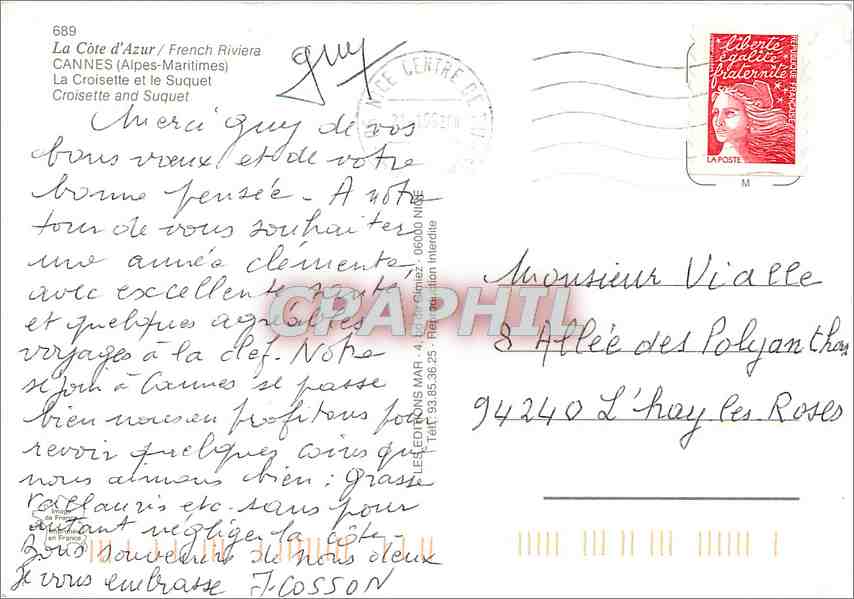 689
La Côte d'Azur / French Riviera
CANNES (Alpes-Maritimes)
La Croisette et le Suquet
Croisette and Suquet
guy
NICE CENTRE DE
liberté
égalité
fraternité
RÉPUBLIQUE FRANÇAISE
LA POSTE
M
Merci guy de vos
bons vœux et de votre
bonne pensée - A notre
tour de vous souhaiter
une année clémente
avec excellente santé
et quelques agréables
voyages à la clef. Notre
séjour à Cannes se passe
bien nous en profitons pour
revoir quelques coins que
nous aimons bien : Grasse
Vallauris etc. sans pour
autant négliger la côte.
Bons souvenirs de nous deux
Je vous embrasse J. COSSON
LES EDITIONS MAR - 4, Rue de Cimiez - 06000 NICE
Tél. : 93.85.36.25 - Reproduction Interdite
CPAPHIL
Monsieur Vialle
8 Allée des Polyanthas
94240 L'hay les Roses
Image
de France
Imprimé
en France